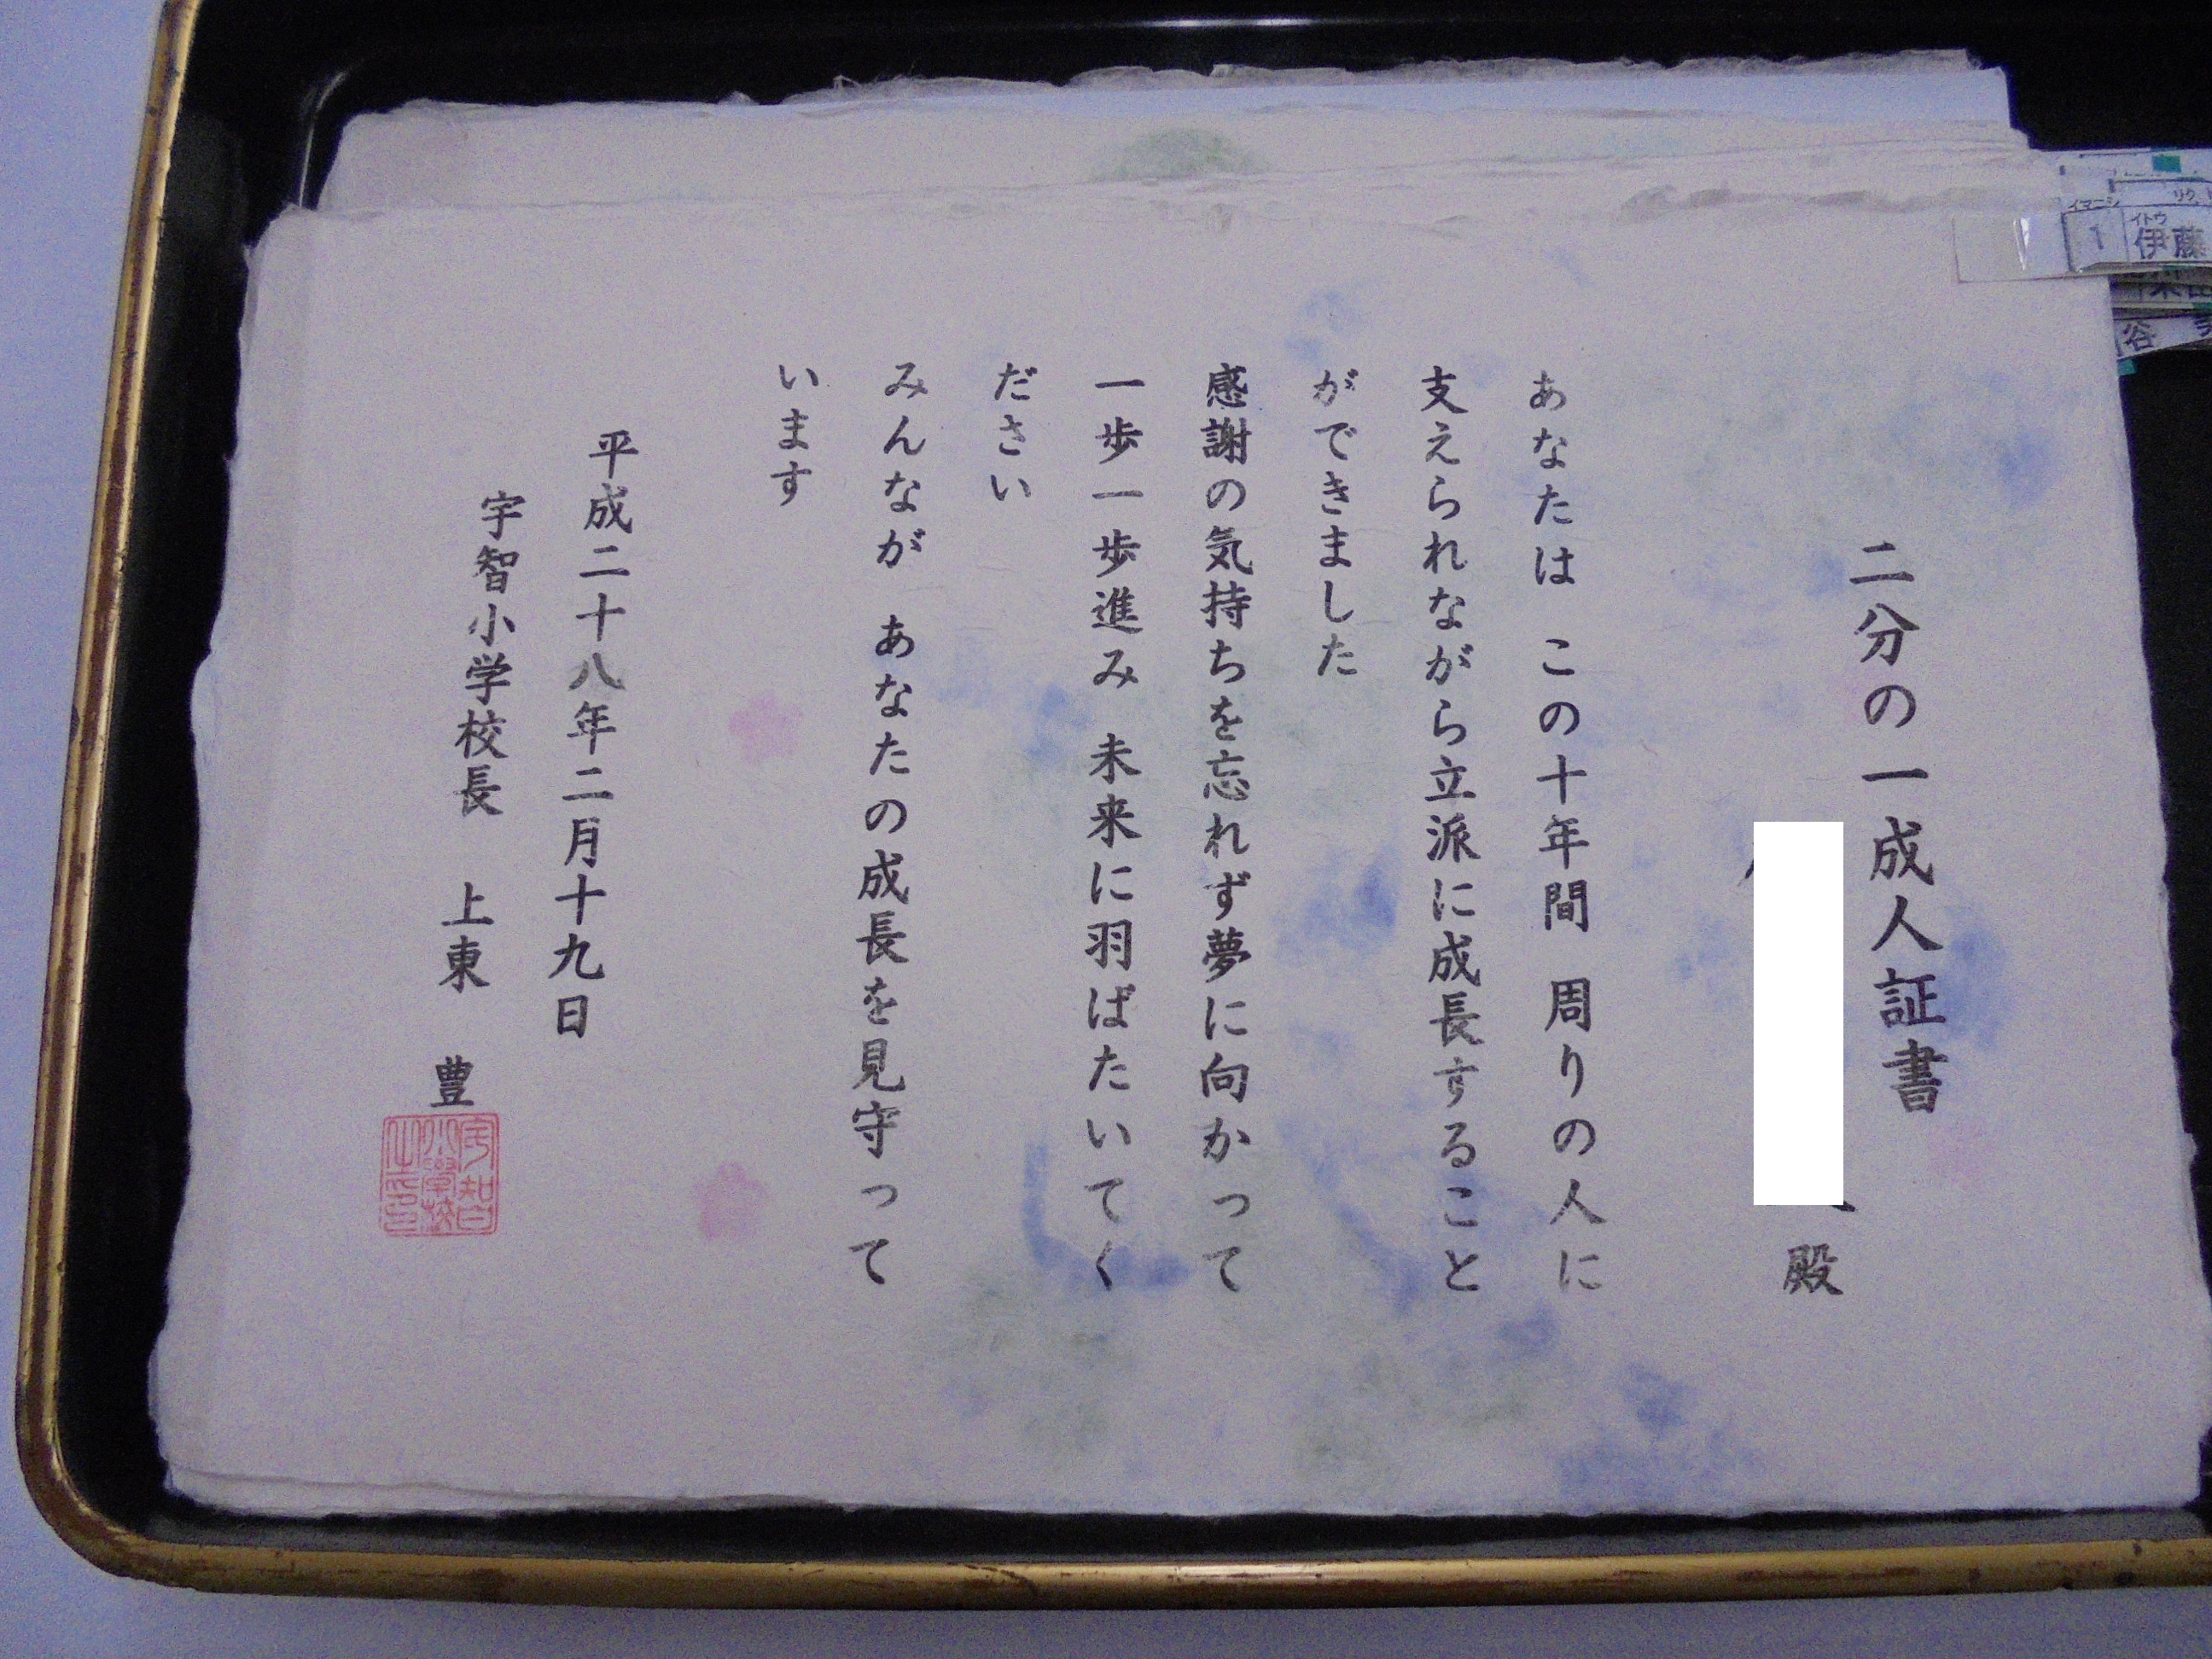 二分の一成人証書
殿
あなたは この十年間 周りの人に
支えられながら立派に成長すること
ができました
感謝の気持ちを忘れず夢に向かって
一歩一歩進み 未来に羽ばたいてく
ださい
みんなが あなたの成長を見守って
います
平成二十八年二月十九日
宇智小学校長 上東 豊
宇智
小学校
之印
イマニシ
リク
イトウ
1 伊藤
谷